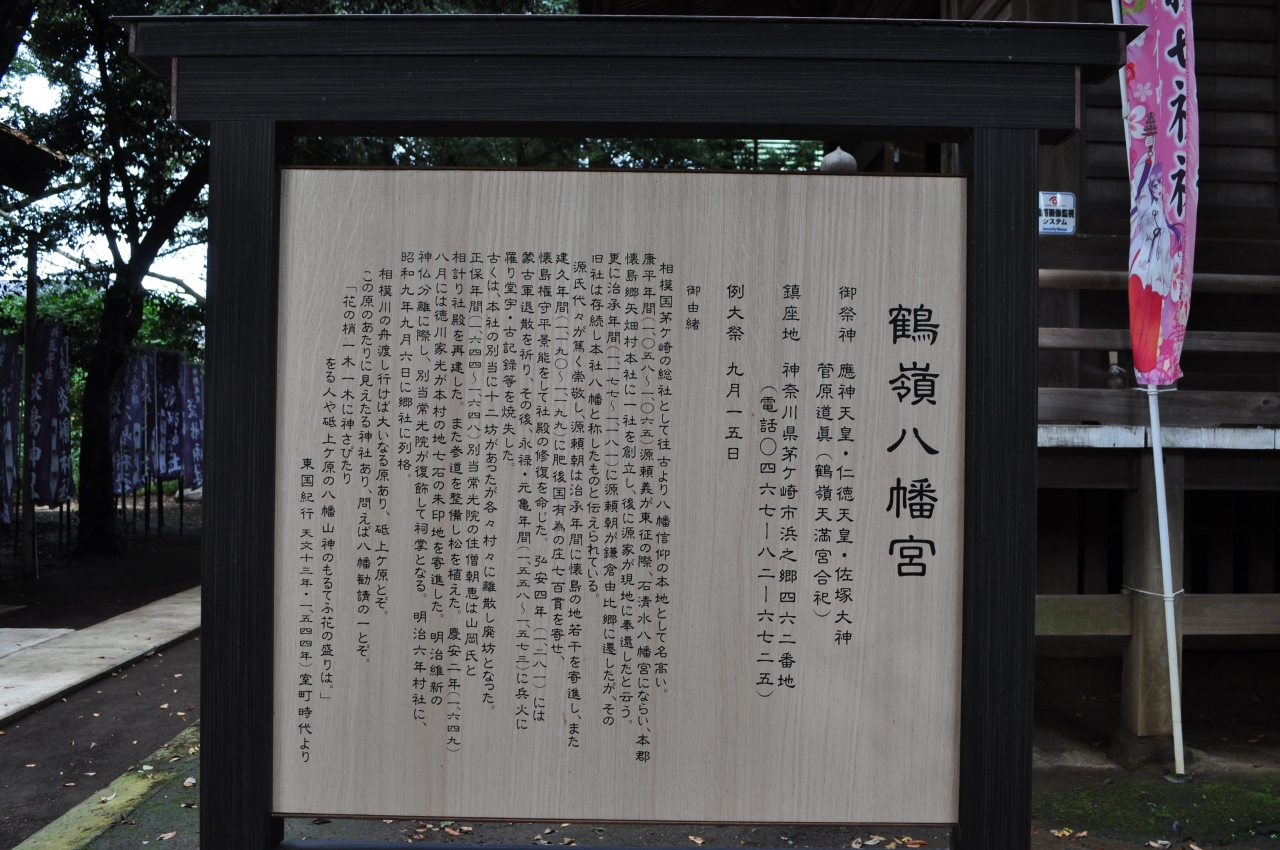 鶴嶺八幡宮
御祭神 應神天皇・仁徳天皇・佐塚大神
菅原道眞（鶴嶺天満宮合祀）
鎮座地 神奈川県茅ケ崎市浜之郷四六二番地
（電話〇四六七ー八二ー六七二五）
例大祭 九月一五日
御由緒
相模国茅ケ崎の総社として往古より八幡信仰の本地として名高い。
康平年間（一、〇五八～一、〇六五）源頼義が東征の際、石清水八幡宮にならい、本郡
懐島郷矢畑村本社に一社を創立し、後に源家が現地に奉還したと云う。
更に治承年間（一一七七～一一八一）に源頼朝が鎌倉由比郷に遷したが、その
旧社は存続し本社八幡と称したものと伝えられている。
源氏代々が篤く崇敬し、源頼朝は治承年間に懐島の地若干を寄進し、また
建久年間（一一九〇～一一九九）に肥後国有為の庄七百貫を寄せ、
懐島権守平景能をして社殿の修復を命じた。 弘安四年（一二八一）には
蒙古軍退散を祈り、その後、永禄・元亀年間（一、五五八～一、五七三）に兵火に
罹り堂宇・古記録等を焼失した。
古くは、本社の別当に十二坊があったが各々村々に離散し廃坊となった。
正保年間（一、六四四～一、六四八）別当常光院の住僧朝恵は山岡氏と
相計り社殿を再建した。 また参道を整備し松を植えた。 慶安二年（一、六四九）
八月には徳川家光が本村の地七石の朱印地を寄進した。 明治維新の
神仏分離に際し、別当常光院が復飾して祠掌となる。 明治六年村社に、
昭和九年九月六日に郷社に列格。
相模川の舟渡し行けば大いなる原あり、砥上ケ原とぞ。
この原のあたりに見えたる神社あり、問えば八幡勧請の一とぞ。
「花の梢一木一木に神さびたり
をる人や砥上ケ原の八幡山神のもるてふ花の盛りは。」
東国紀行 天文十三年・一、五四四年）室町時代より
七神社
防犯画像監視
システム
淡島神社